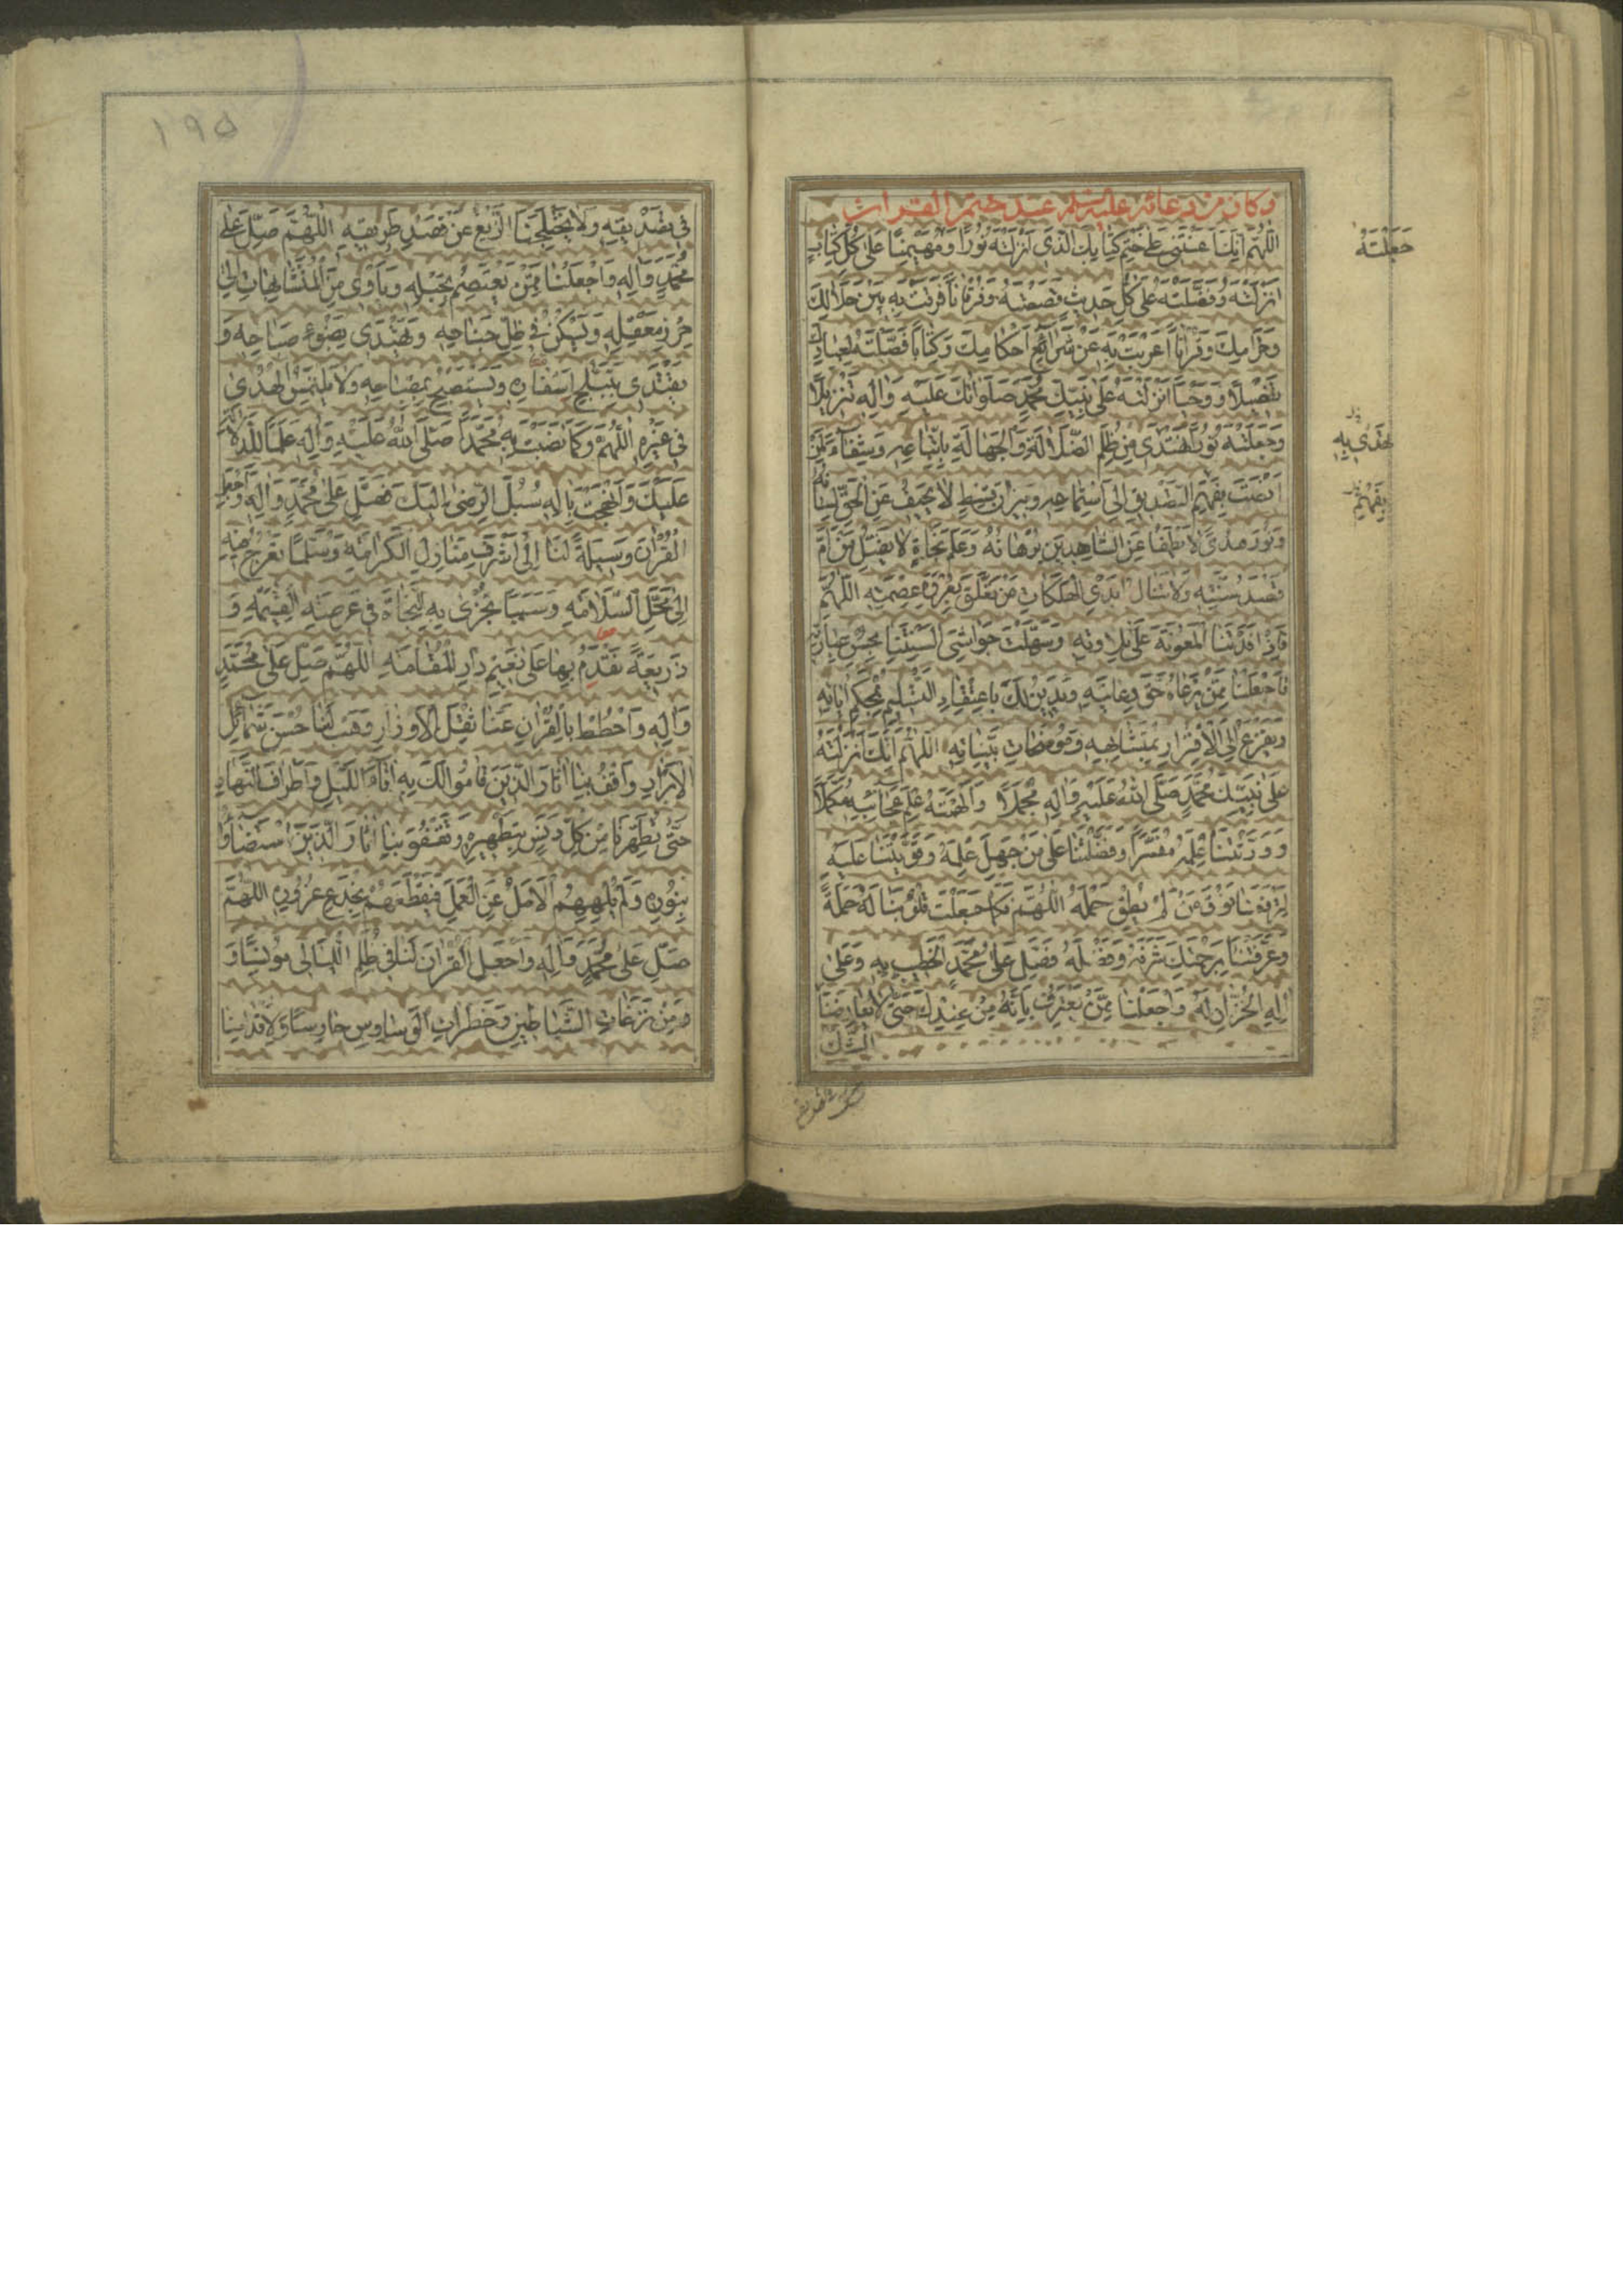 وكان من دعائه عليه السلم عند ختم القران
اللهم انك اعنتنى على ختم كتابك الذى انزلته نورا و مهيمنا على كل كتاب
انزلته و فضلته على كل حديث قصصته و فرقانا فرقت به بين حلالك
وحرامك وقرانا اعربت به عن شرائع احكامك وكتابا فصلته لعبادك
تفصيلا و وحيا انزلته على نبيك محمد صلواتك عليه و اله تنزيلا
وجعلته نورا نهتدى من ظلم الضلالة و الجهالة باتباعه وشفاء لمن
انصت بفهم التصديق الى استماعه وميزان قسط لا يحيف عن الحق لسانه
ونور هدى لا يطفا عن الشاهدين برهانه وعلم نجاة لا يضل من ام
قصد سنته ولا تنال ايدى الهلكات من تعلق بعروة عصمته اللهم
فاذا افدتنا المعونة على تلاوته وسهلت جواسى السنتنا بحسن عبارته
فاجعلنا ممن يرعاه حق رعايته ويدين لك باعتقاد التسليم لمحكم اياته
ويفزع الى الاقرار بمتشابهه و موضحات بيناته اللهم انك انزلته
على نبيك محمد صلى الله عليه واله مجملا والهمته علم عجائبه مكملا
و ورثتنا علمه مفسرا وفضلتنا على من جهل علمه وقويتنا عليه
لترفعنا فوق من لم يطق حمله اللهم فكما جعلت قلوبنا له حملة
وعرفتنا برحمتك شرفه وفضله فصل على محمد الخطيب به وعلى
اله الخزان له واجعلنا ممن يعترف بانه من عندك حتى لا يعارضنا
الشك
جعلته
نهتدى به
يفهم
فى تصديقه ولا يختلجنا الزيغ عن قصد طريقه اللهم صل على
محمد واله واجعلنا ممن يعتصم بحبله وياوى من المتشابهات الى
حرز معقله ويسكن فى ظل جناحه ويهتدى بضوء صباحه و
يقتدى بتبلج اسفاره ويستصبح بمصباحه ولا يلتمس الهدى
فى غيره اللهم وكما نصبت به محمدا صلى الله عليه واله علما للدلالة
عليك وانهجت باله سبل الرضى اليك فصل على محمد واله واجعل
القران وسيلة لنا الى اشرف منازل الكرامة وسلما نعرج فيه
الى محل السلامة وسببا نجزى به النجاة فى عرصة القيمة و
ذريعة نقدم بها على نعيم دار المقامة اللهم صل على محمد
واله واحطط بالقران عنا ثقل الاوزار وهب لنا حسن شمائل
الابرار واقف بنا اثار الذين قاموا لك به اناء الليل واطراف النهار
حتى تطهرنا من كل دنس بتطهيره وتقفو بنا اثار الذين استضاؤا
بنوره ولم يلههم الامل عن العمل فيقطعهم بخدع غروره اللهم
صل على محمد واله واجعل القران لنا فى ظلم الليالى مونسا و
من نزغات الشياطين وخطرات الوساوس حارسا ولاقدامنا
١٩٥